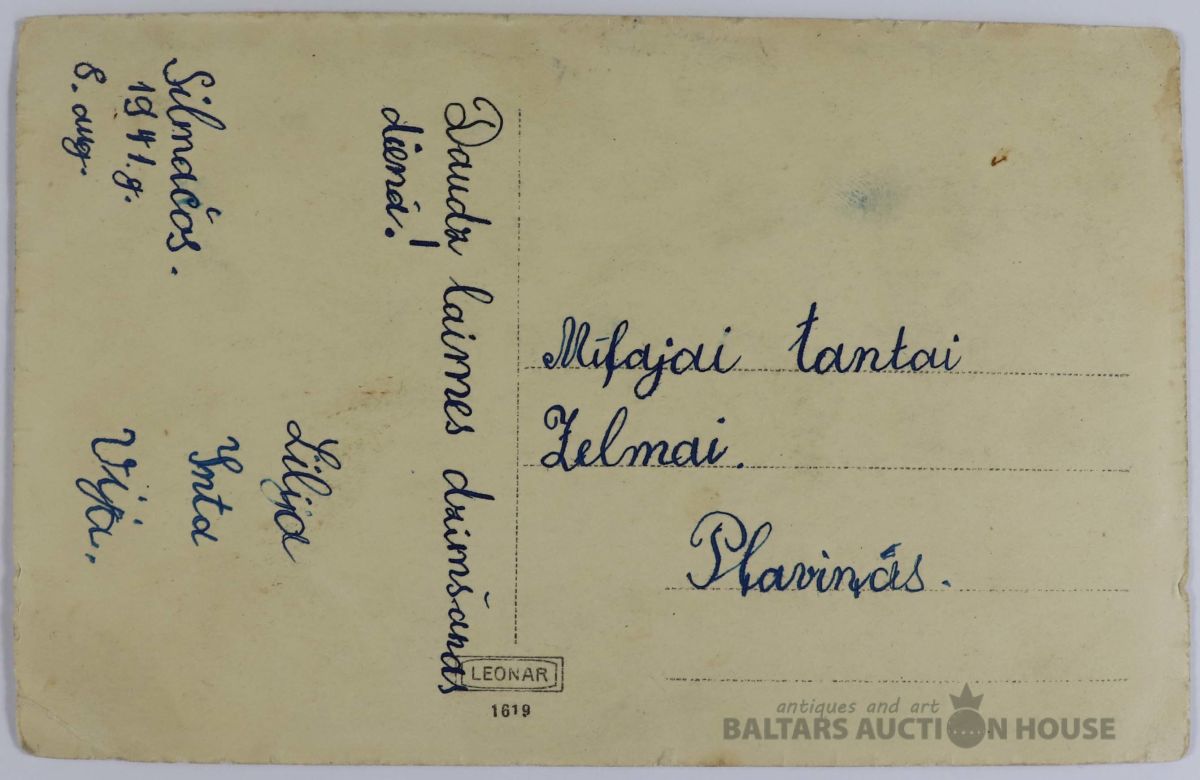 Daudz laimes dzimšanas
dienā!
Lilija
Inta
Vija.
Silmačos.
1941.g.
8. aug.
Mīļajai tantai
Zelmai.
Pļaviņās.
LEONAR
1619
antiques and art
BALTARS AUCTION HOUSE